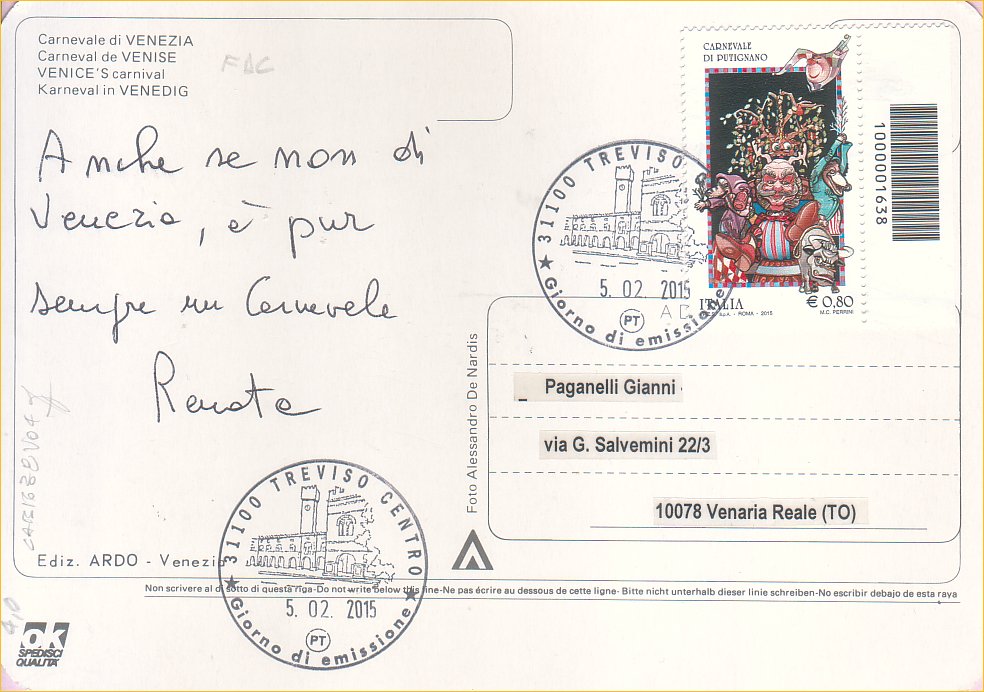 Carnevale di VENEZIA
Carneval de VENISE
VENICE'S carnival
Karneval in VENEDIG
FDC
Anche se non di
Venezia, è pur
sempre un Carnevale
Renata
Ediz. ARDO - Venezia
Foto Alessandro De Nardis
CARNEVALE
DI PUTIGNANO
ITALIA
€ 0,80
I.P.Z.S. S.p.A. - ROMA - 2015
M.C. PERRINI
1000001638
31100 TREVISO C
5. 02. 2015
PT
Giorno di emissione
Paganelli Gianni
via G. Salvemini 22/3
10078 Venaria Reale (TO)
31100 TREVISO CENTRO
5. 02. 2015
PT
Giorno di emissione
Non scrivere al di sotto di questa riga-Do not write below this line-Ne pas écrire au dessous de cette ligne- Bitte nicht unterhalb dieser linie schreiben-No escribir debajo de esta raya
ok
SPEDISCI
QUALITÀ